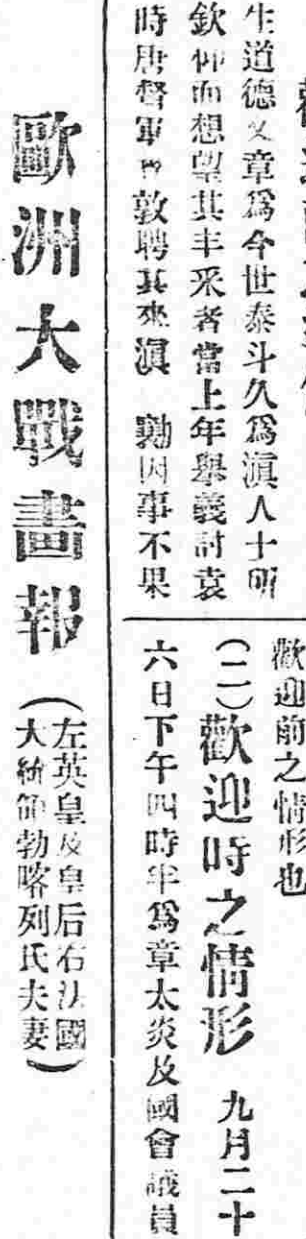 生道德文章為今世泰斗久為滇人士所
欽仰而想望其丰采者當上年舉義討袁
時唐督軍曾敦聘其來滇 勷因事不果
歡迎前之情形也
(二)歡迎時之情形 九月二十
六日下午四時半為章太炎及國會議員
歐洲大戰畫報
(左英皇及皇后右法國
大統領勃喀列氏夫妻)